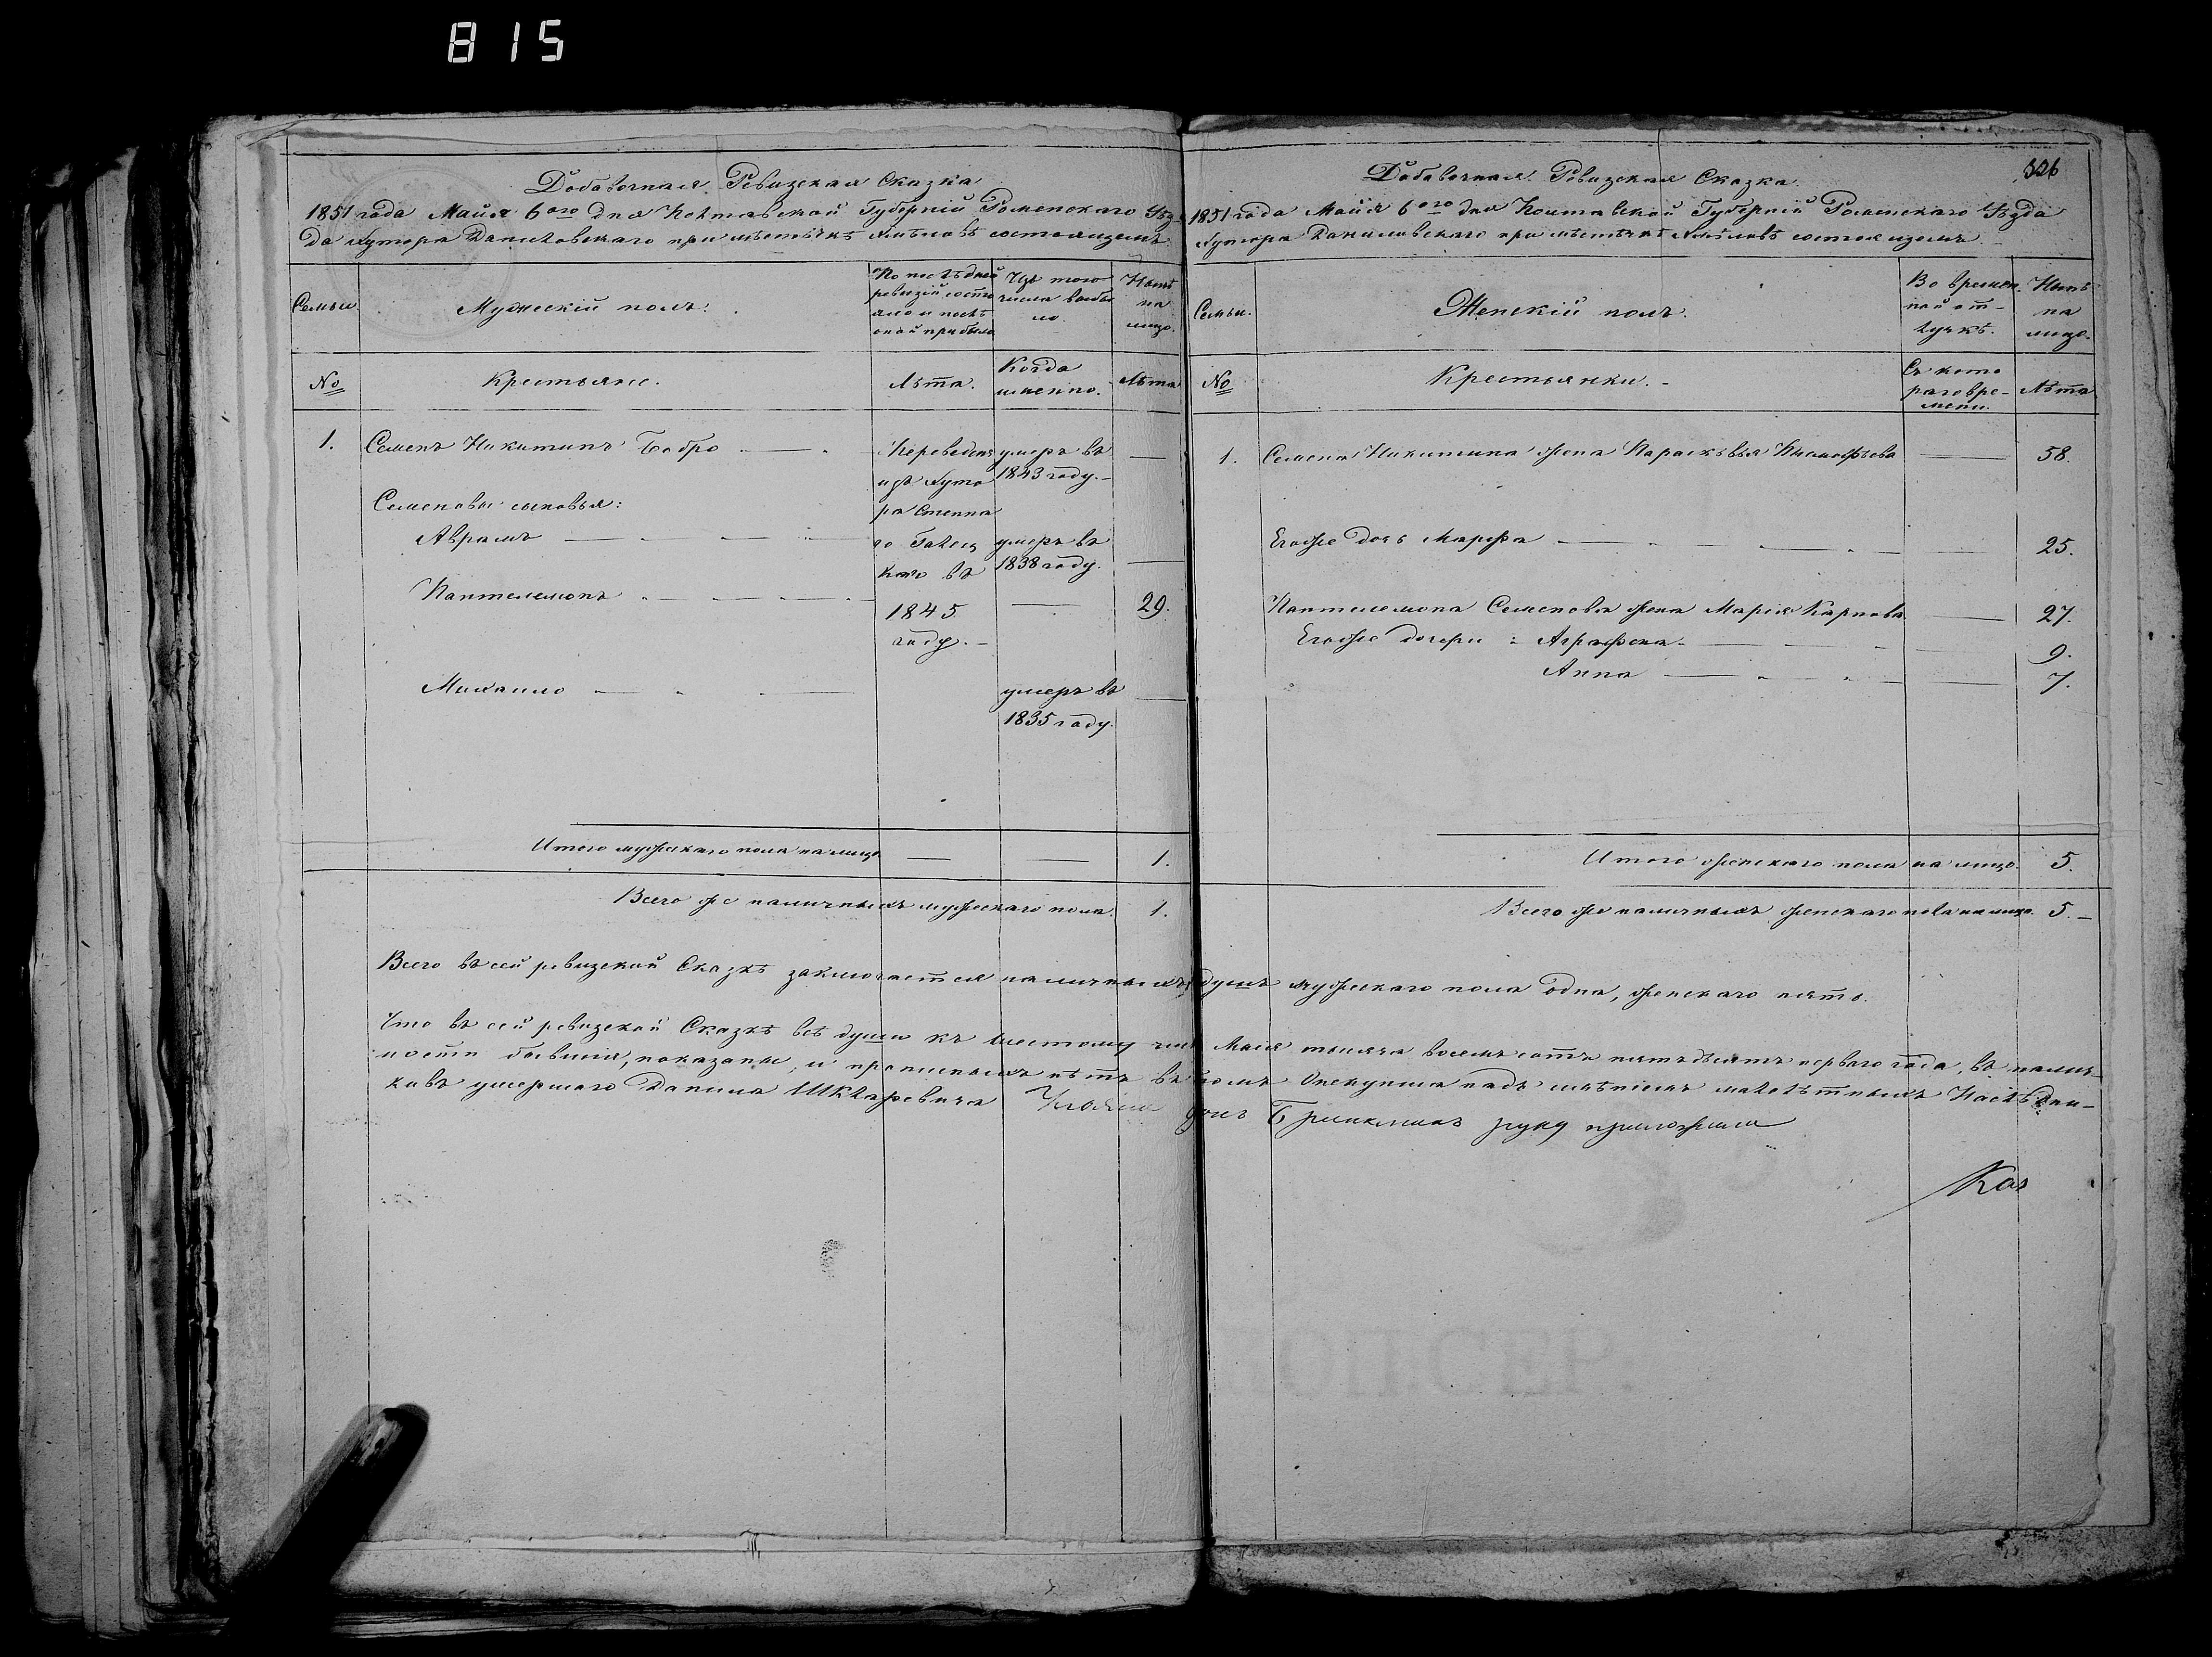 815
Добавочная Ревизская Сказка
1851 года Майя 6ого дня Полтавской Губерніи Роменскаго Уѣз-
да хутора Даниловскаго при мѣстѣчкѣ состоящемъ
Семьи.
Мужескій полъ.
По послѣдней
ревизіи состо
яло и послѣ
оной прибыло
Изъ того
числа выбы
ло.
Нынѣ
на
лицо.
№
Крестьяне.
Лѣта.
Когда
именно.
Лѣта
1.
Семенъ Никитинъ Бобро
Переведенъ
изъ хуто
ра Степна
го
въ
1845
году.
умеръ въ
1843 году.
Семеновы сыновья:
Аврамъ
умеръ въ
1838 году.
Пантелемонъ
29.
Михаило
умеръ въ
1835 году.
Итого мужскаго пола на лицо
1.
Всего же наличныхъ мужескаго пола.
1.
326
Добавочная Ревизская Сказка.
1851 года Майя 6ого дня Полтавской Губерніи Роменскаго Уѣзда
хутора Даниловскаго при мѣстѣчкѣ состоящемъ
Семьи.
Женскій полъ.
Во времен
ной от-
лучкѣ.
Нынѣ
на
лицо.
№
Крестьянки.
Съ кото
раго вре-
мени.
Лѣта
1.
Семена Никитина жена Парасковья
58.
Егоже дочь Марфа
25.
Пантелемона Семенова жена Марія Карпова
27.
Егоже дочери: Аграфена
9.
Анна
7.
Итого женскаго пола на лицо.
5.
Всего же наличныхъ женскаго пола на лицо.
5.
Всего въ сей ревизской Сказкѣ заключается наличныхъ душъ мужскаго пола одна, женскаго пять.
Что въ сей ревизской Сказкѣ всѣ души къ шестому чис. Мая тысяча восемь сотъ пятьдесятъ перваго года, въ налич-
ности бывшія, показаны, и прописныхъ нѣтъ въ томъ Опекунша надъ имѣніемъ малолѣтныхъ Наслѣдни-
ковъ умершаго Данила Шкляревича руку приложила